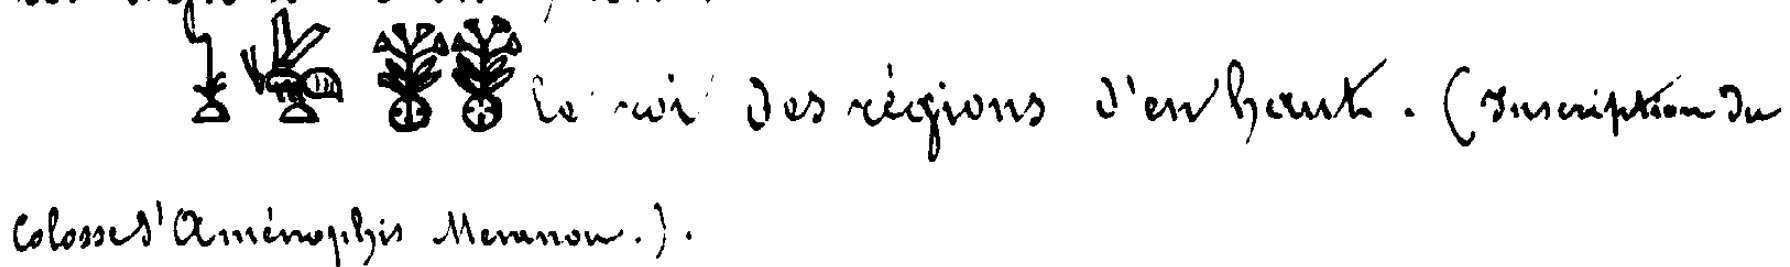 𓆥𓆤 𓇗𓇗 le roi des régions d'en haut. (Inscription du
Colosse d'Aménophis Memnon.).